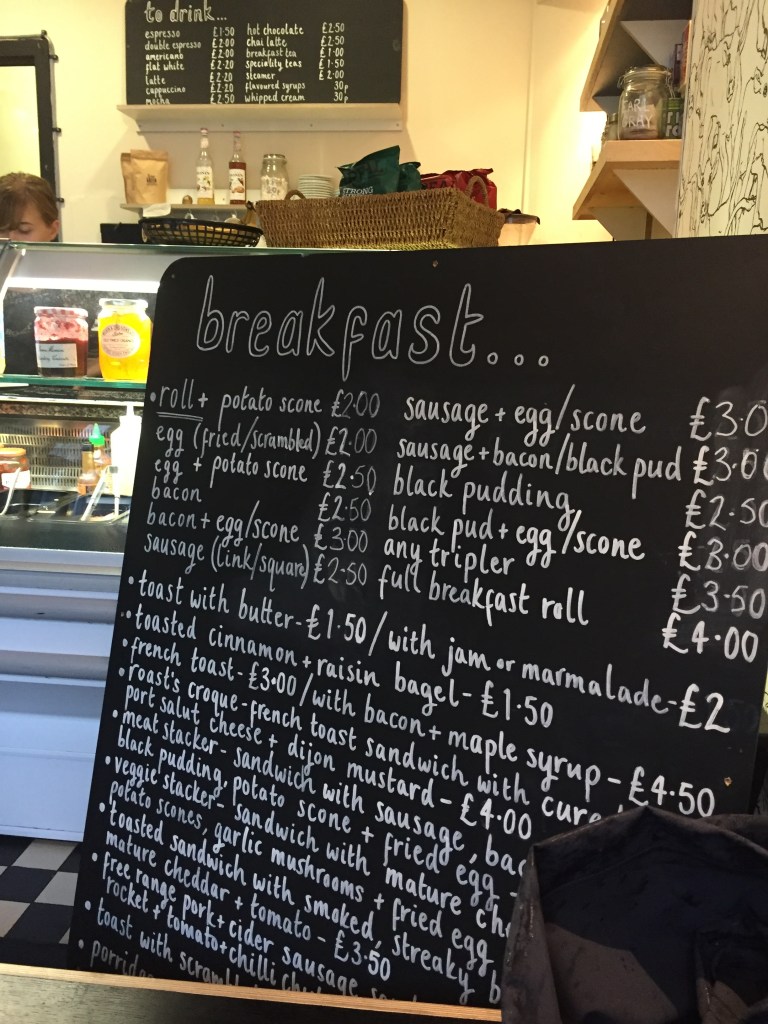 to drink...
espresso £1·50
double espresso £2·00
americano £2·00
flat white £2·20
latte £2·20
cappuccino £2·20
mocha £2·50
hot chocolate £2·50
chai latte £2·50
breakfast tea £1·00
speciality teas £1·50
steamer £2·00
flavoured syrups 30p
whipped cream 30p
EARL GRAY
STRONG
breakfast...
• roll + potato scone £2·00
egg (fried/scrambled) £2·00
egg + potato scone £2·50
bacon £2·50
bacon + egg/scone £3·00
sausage (link/square) £2·50
sausage + egg/scone £3·0
sausage + bacon/black pud £3·00
black pudding £2·50
black pud + egg/scone £3·00
any tripler £3·50
full breakfast roll £4·00
• toast with butter - £1·50 / with jam or marmalade - £2
• toasted cinnamon + raisin bagel - £1·50
• french toast - £3·00 / with bacon + maple syrup - £4·50
• roast's croque - french toast sandwich with cure
port salut cheese + dijon mustard - £4·00
• meat stacker - sandwich with sausage, bac
black pudding, potato scone + fried egg -
• veggie stacker - sandwich with mature ch
potato scones, garlic mushrooms + fried egg
• toasted sandwich with smoked, streaky b
mature cheddar + tomato - £3·50
• free range pork + cider sausage
rocket + tomato + chilli
• toast with